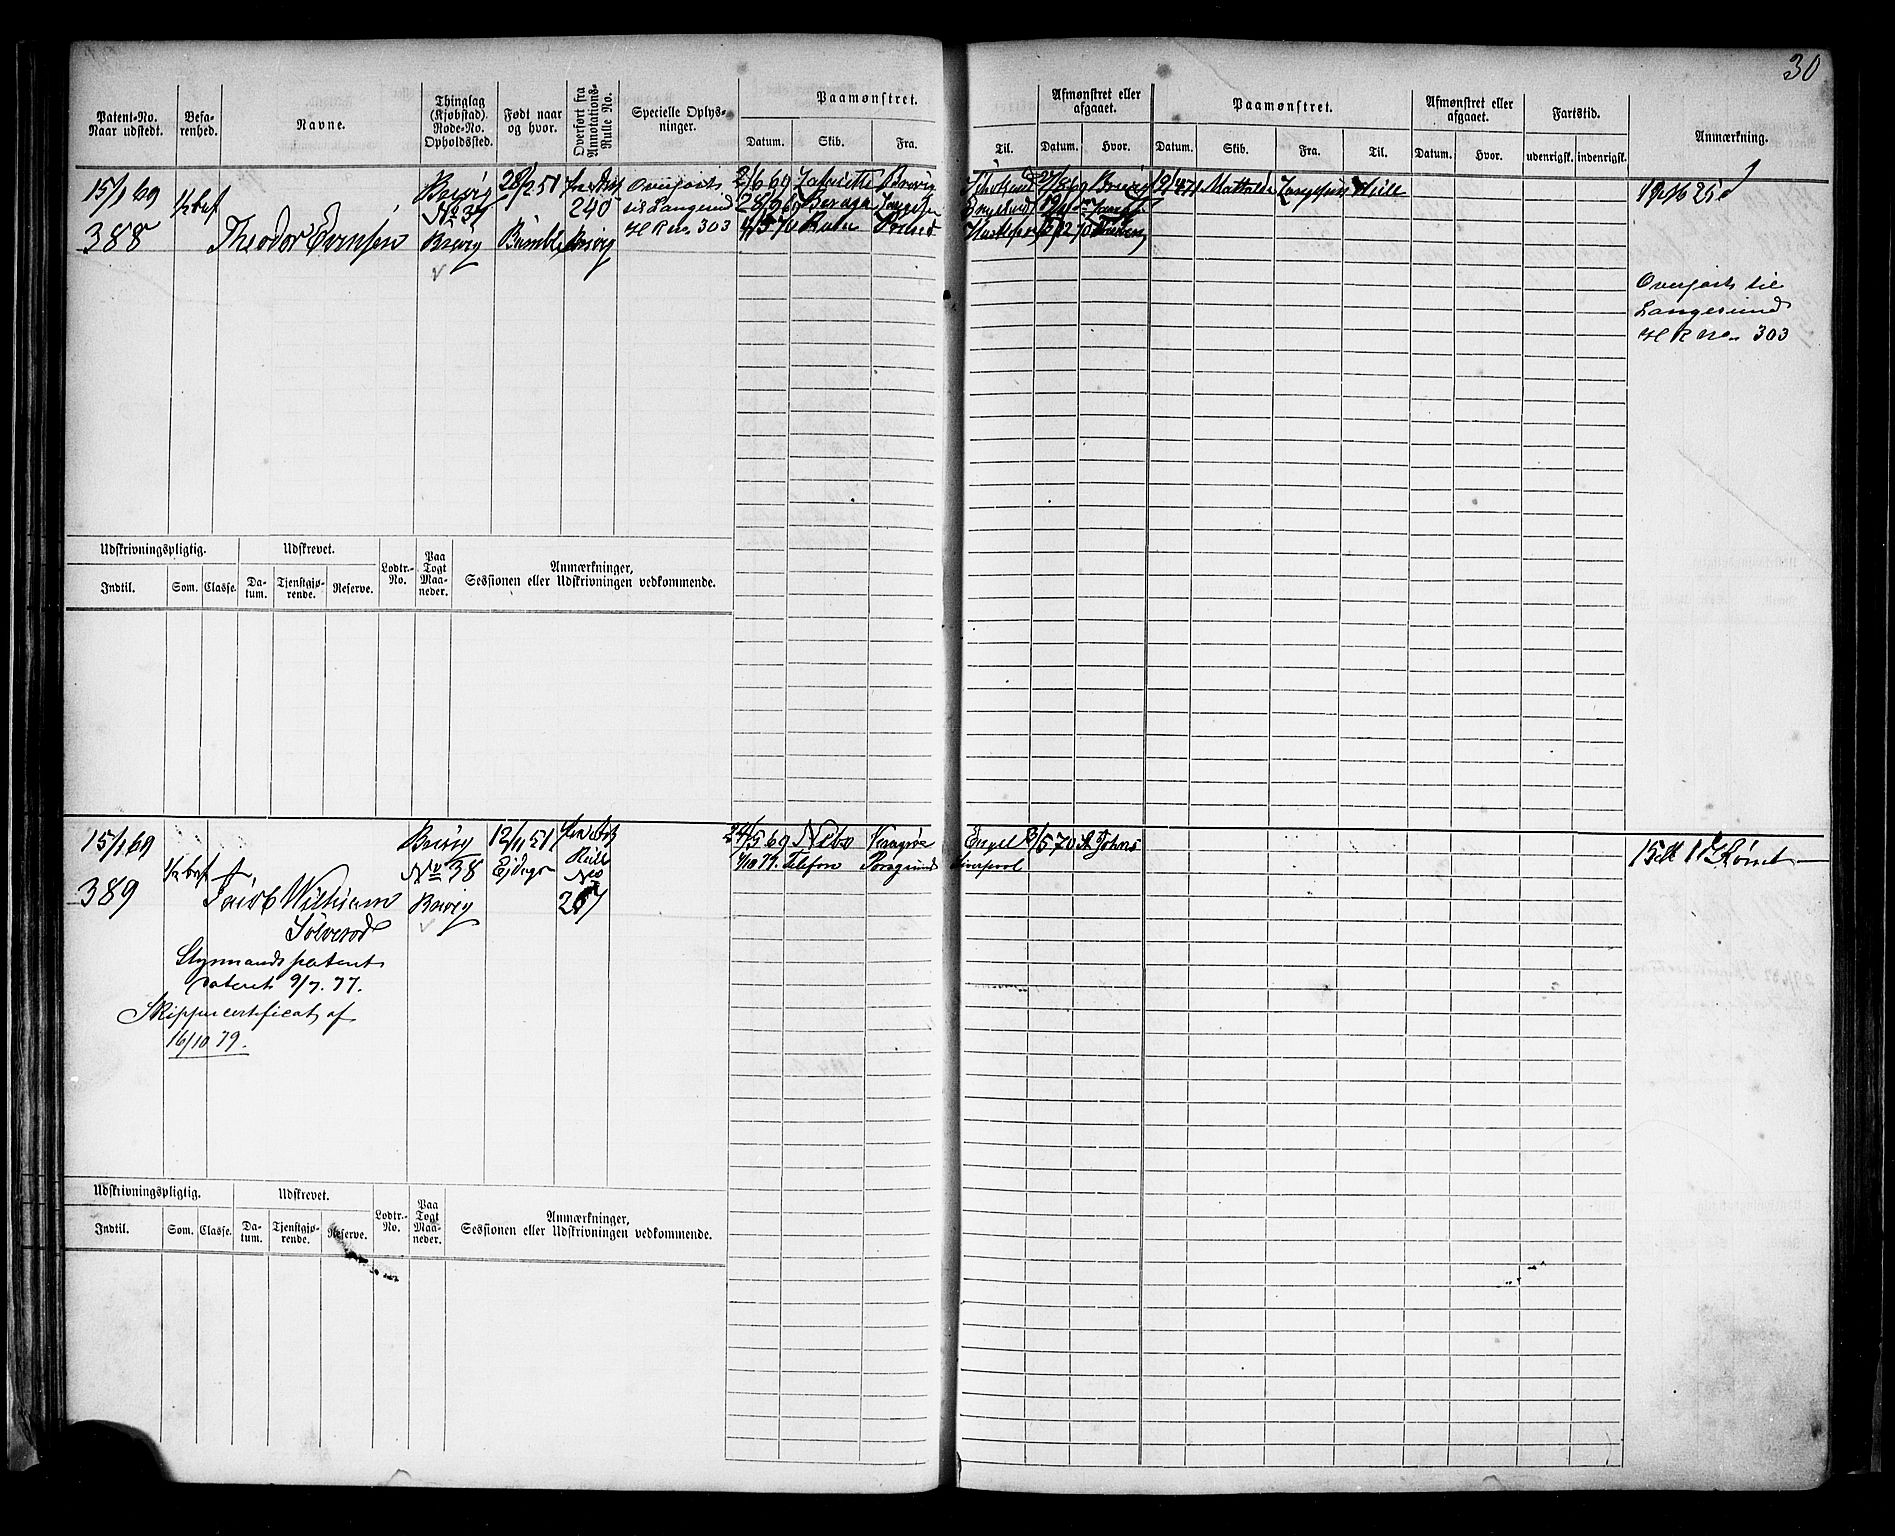 30
Patent-No. Naar udstedt.
Befarenhed.
Navne.
Thinglag (Kjøbstad). Rode-No. Opholdssted.
Født naar og hvor.
Overført fra Annotations-Rulle No.
Specielle Oplysninger.
Paamønstret.
Datum. Skib. Fra. Til.
Afmønstret eller afgaaet.
Datum. Hvor.
Paamønstret.
Datum. Skib. Fra. Til.
Afmønstret eller afgaaet.
Datum. Hvor.
Fartstid.
udenrigsk. indenrigsk.
Anmærkning.
15/1 69
388
1/2 bef
Theodor Evensen
Brevig
No 37
Brevig
20/2 51
Bamble
240
Brevig
Overført
til Langesund
H R no. 303
2/6 69 Lafaiette Brevig
27/8 69 Brevig
19/4 71 Mathilde Langesund Hull
Overført til
Langesund
H R no. 303
Udskrivningspligtig.
Indtil. Som. Classe.
Udskrevet.
Datum. Tjenstgjørende. Reserve.
Lodtr.-No.
Paa Togt Maaneder.
Anmærkninger, Sessionen eller Udskrivningen vedkommende.
15/1 69
389
1/2 bef
Jacob William
Sølverød
Styrmandspatent
dateret 9/7. 77.
Skippercertificat af
16/10 79.
Brevig
No 38
Brevig
12/11 51
Eidanger
Rulle
No
267
24/5 69
Engel
St Johns
1/10 79. Telefon Porsgrund Liverpool
Udskrivningspligtig.
Indtil. Som. Classe.
Udskrevet.
Datum. Tjenstgjørende. Reserve.
Lodtr.-No.
Paa Togt Maaneder.
Anmærkninger, Sessionen eller Udskrivningen vedkommende.